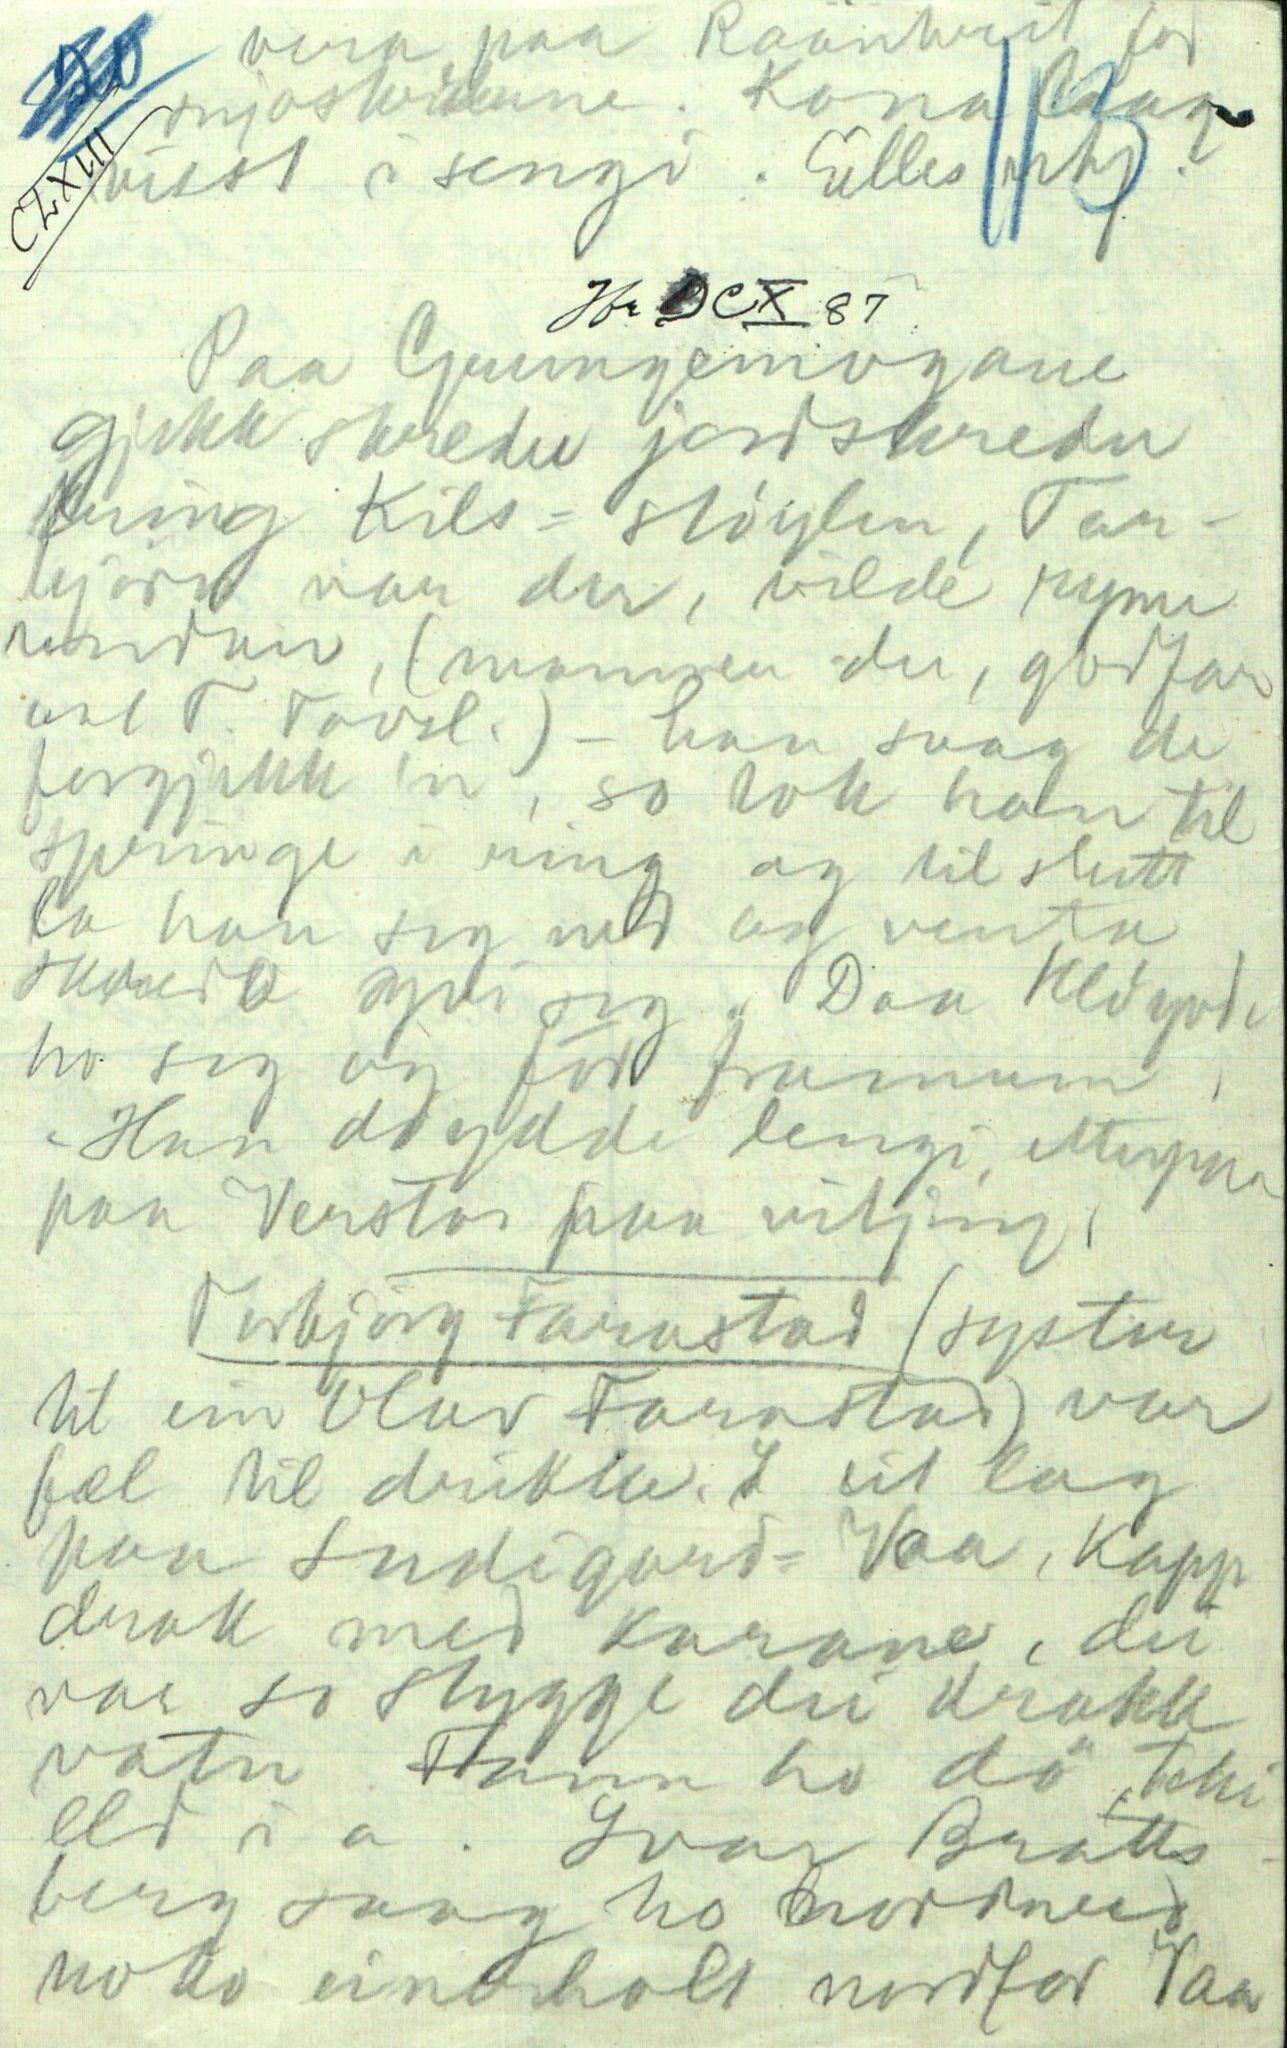 113
CLXIII
vera paa Raänkvit for
snjoskridune. Kona laag
visst i sengi. Elles
DCX 87
Paa Grungemogane
gjekk skredu jordskredu
kring Kils-støylen, Tar-
bjørn var der, vilde ryme
undan, (mannen der, godfar
aat T. Tovsl.) - han saag de
forgjekk 'n, so tok han til
springe i ring og til slutt
la han seg ned og venta
skreda yvi seg. Daa kløyvde
ho seg og for framum,
- Han døydde lengi etterpaa
paa Verstor paa vitjing,
Torbjørg Farastad (syster
til ein Olav Farastad) var
fæl til drikke. I eit lag
paa Sudigard-Vaa, kapp
drak med karane, dei
var so stygge dei drakk
vatn. Fann ho dø, teki
eld i a. Ivar Bratts-
berg saag ho
noko einerholt nordfor Vaa